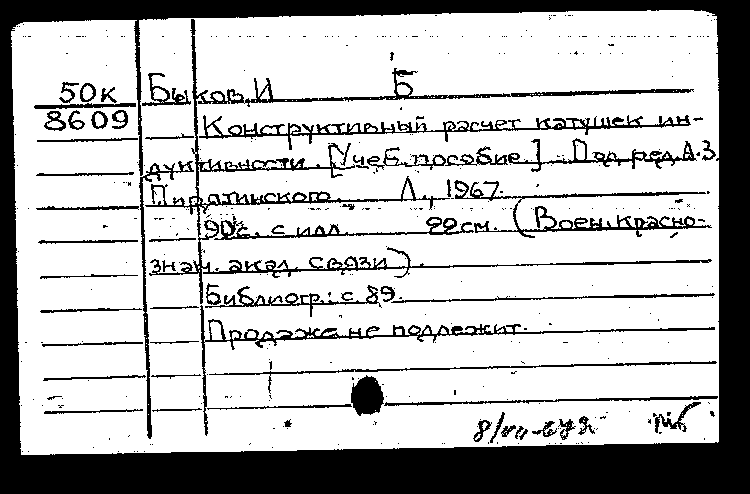 50к Быков, И Б
8609 Конструктивный расчет катушек ин-
дуктивности. [Учеб. пособие.] Под ред. А.З.
Пиратинского. Л., 1967.
90с. с илл. 22см. (Воен. красно-
знам. акад. связи).
Библиогр.: с. 89.
Продаже не подлежит.